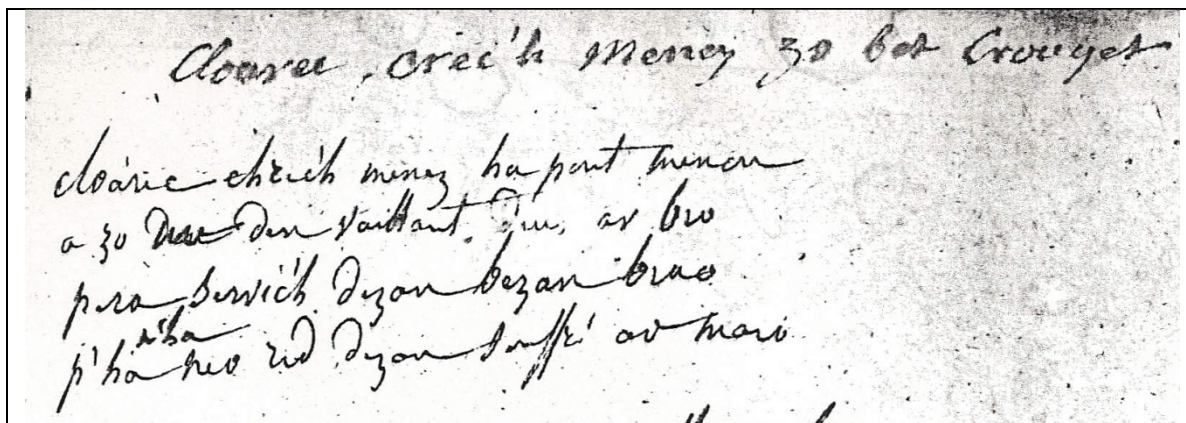 Cloarec, Crec'h Meney zo bet Crouget
cloarec chrec'h menez ha pont menou
a zo den vaillant. dre ar bro
pera servich dezan bezan brao
p'ha n'ha red dezan souffri ar maro